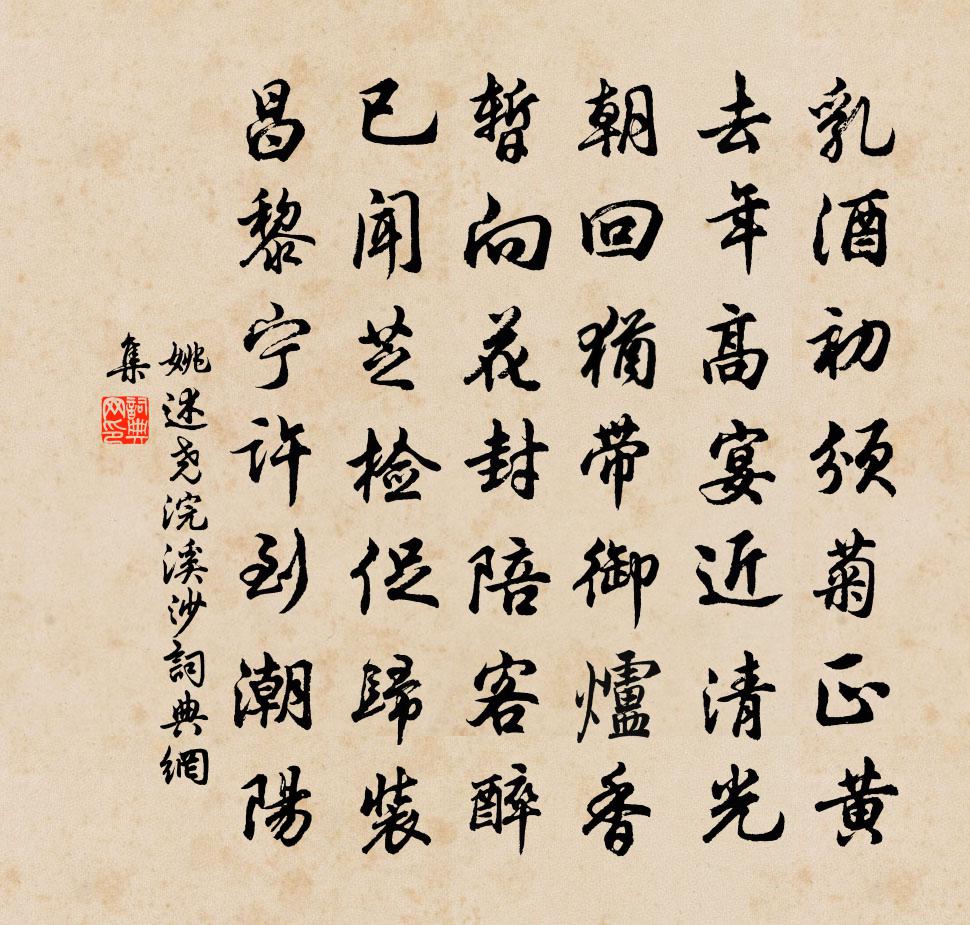 乳酒初颁菊正黄
去年高宴近清光
朝回犹带御爐香
暫向花封陪客醉
已闻芝检促歸装
昌黎宁许到潮陽
姚述尧浣溪沙詞典網
集
詞典网印